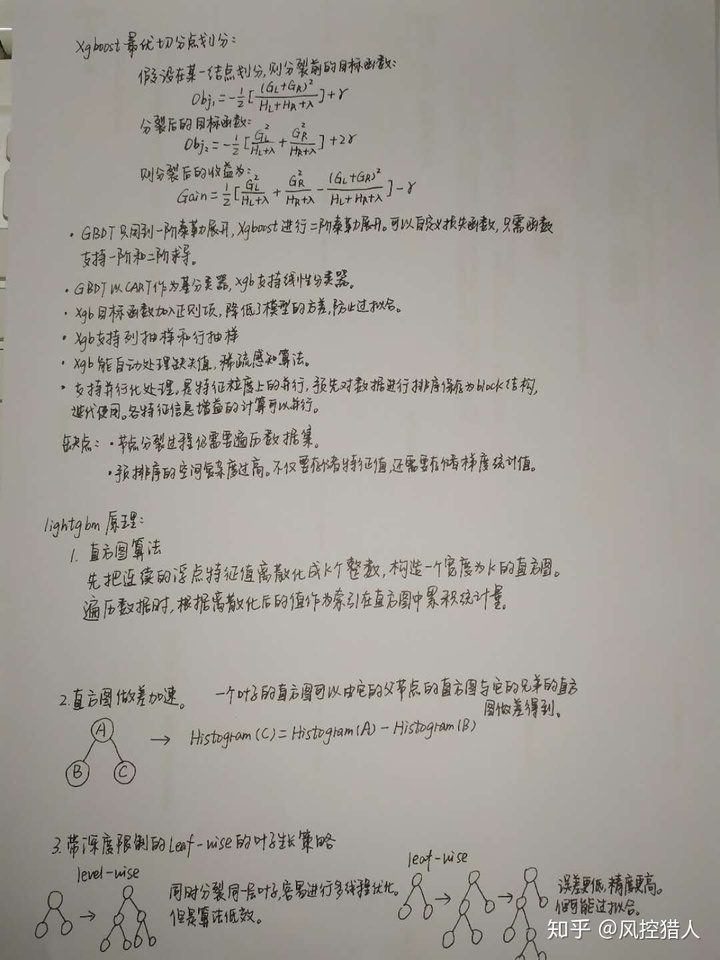 Xgboost最优切分点划分:
假设在某一结点划分,则分裂前的目标函数:
Obj₁=-1/2[(G_L+G_R)²/(H_L+H_R+λ)]+γ
分裂后的目标函数:
Obj₂=-1/2[G_L²/(H_L+λ)+G_R²/(H_R+λ)]+2γ
则分裂后的收益为:
Gain=1/2[G_L²/(H_L+λ)+G_R²/(H_R+λ)-(G_L+G_R)²/(H_L+H_R+λ)]-γ
·GBDT只用到一阶泰勒展开,Xgboost进行二阶泰勒展开。可以自定义损失函数,只需函数
支持一阶和二阶求导。
·GBDT以CART作为基分类器,xgb支持线性分类器。
·Xgb目标函数加入正则项,降低了模型的方差,防止过拟合。
·Xgb支持列抽样和行抽样
·Xgb能自动处理缺失值,稀疏感知算法。
·支持并行化处理。是特征粒度上的并行,预先对数据进行排序保存为block结构,
迭代使用。各特征信息增益的计算可以并行。
缺点:·节点分裂过程仍需要遍历数据集。
·预排序的空间复杂度过高。不仅要存储特征值,还需要存储梯度统计值。
lightgbm原理:
1.直方图算法
先把连续的浮点特征值离散化成k个整数,构造一个宽度为k的直方图。
遍历数据时,根据离散化后的值作为索引在直方图中累积统计量。
2.直方图做差加速。 一个叶子的直方图可以由它的父节点的直方图与它的兄弟的直方
图做差得到。
A → Histogram(C)=Histogram(A)-Histogram(B)
B C
3.带深度限制的Leaf-wise的叶子生长策略
level-wise
同时分裂同一层叶子,容易进行多线程优化。
但是算法低效。
leaf-wise
误差更低,精度更高。
但可能过拟合。
知乎 @风控猎人